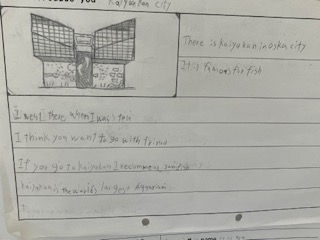 you Kaiyukan city
There is kaiyukan in oska city
It is famous for fish
I went there when I was
I think you want to go with friend
If you go to kaiyukan I recommend sunfish
kaiyukan is the world's largest Aquarium